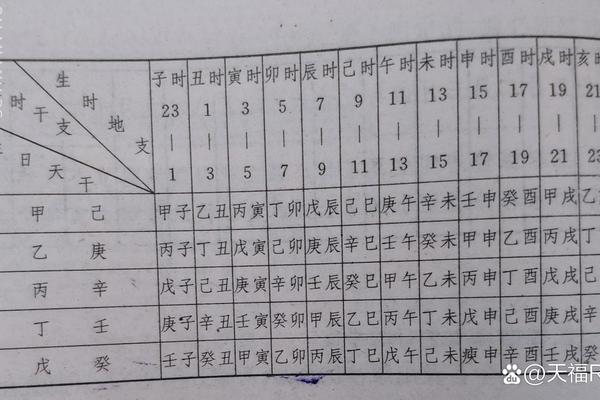 生时地支
时干
生日天干
子时 丑时 寅时 卯时 辰时 己时 午时 未时 申时 酉时 戌时 亥时
23 1 3 5 7 9 11 13 15 17 19 21
| | | | | | | | | | | |
1 3 5 7 9 11 13 15 17 19 21 23
甲 己 甲子 乙丑 丙寅 丁卯 戊辰 己巳 庚午 辛未 壬申 癸酉 甲戌 乙
乙 庚 丙子 丁丑 戊寅 己卯 庚辰 辛巳 壬午 癸未 甲申 乙酉 丙戌 丁
丙 辛 戊子 己丑 庚寅 辛卯 壬辰 癸巳 甲午 乙未 丙申 丁酉 戊戌 己
丁 壬 庚子 辛丑 壬寅 癸卯 甲辰 乙巳 丙午 丁未 戊申 己酉 庚戌 辛
戊 癸 壬子 癸丑 甲寅 乙卯 丙辰 丁巳 戊午 己未 庚申 辛酉 壬戌 癸
Bai du @天福R